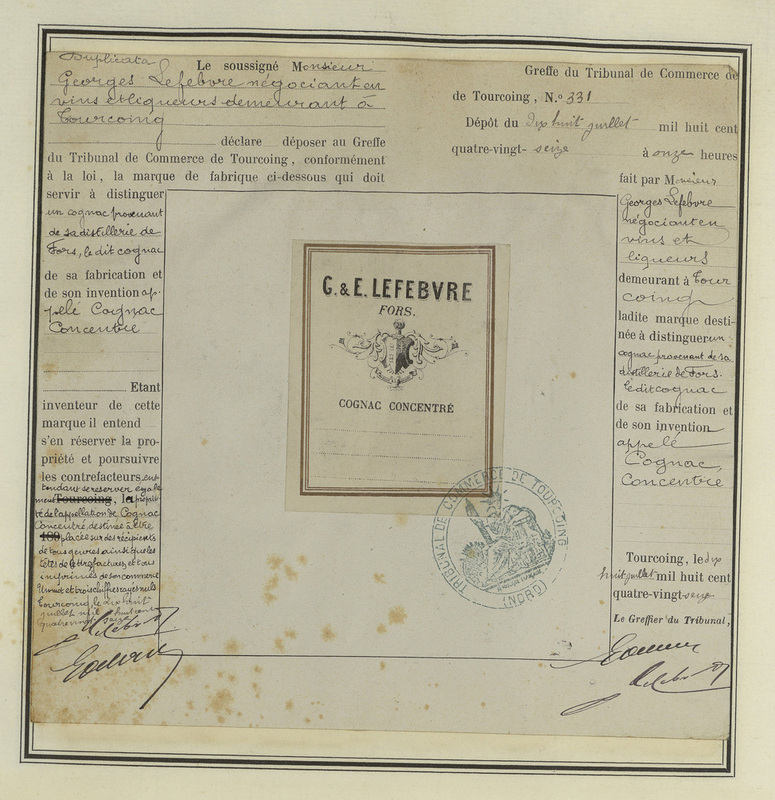 Duplicata
Le soussigné Monsieur
Georges Lefebvre négociant en
vins et liqueurs demeurant à
Tourcoing
déclare déposer au Greffe
du Tribunal de Commerce de Tourcoing, conformément
à la loi, la marque de fabrique ci-dessous qui doit
servir à distinguer
un cognac provenant
de sa distillerie de
Fors, le dit cognac
de sa fabrication et
de son invention ap-
pelé Cognac
Concentré
Etant
inventeur de cette
marque il entend
s'en réserver la pro-
priété et poursuivre
les contrefacteurs, en-
tendant se réserver égale
ment Tourcoing, la proprié-
té de l'appellation de Cognac
Concentré, destinée à être
189 placée sur des récipients
de tous genres ainsi que les
têtes de lettres, factures, et tous
imprimés de son commerce
Un mot et trois chiffres rayés nuls
Tourcoing, le dix huit
juillet mil huit cent
quatre vingt seize
Greffe du Tribunal de Commerce de
de Tourcoing, N.º 331
Dépôt du dix huit juillet mil huit cent
quatre-vingt-seize à onze heures
fait par Monsieur
Georges Lefebvre
négociant en
vins et
liqueurs
demeurant à Tour
coing
ladite marque desti-
née à distinguer un
cognac provenant de sa
distillerie de Fors.
le dit cognac
de sa fabrication et
de son invention
appelé
Cognac
Concentré
Tourcoing, le dix
huit juillet mil huit cent
quatre-vingt-seize
Le Greffier du Tribunal,
G. & E. LEFEBVRE
FORS.
COGNAC CONCENTRÉ
TRIBUNAL DE COMMERCE DE TOURCOING
(NORD)